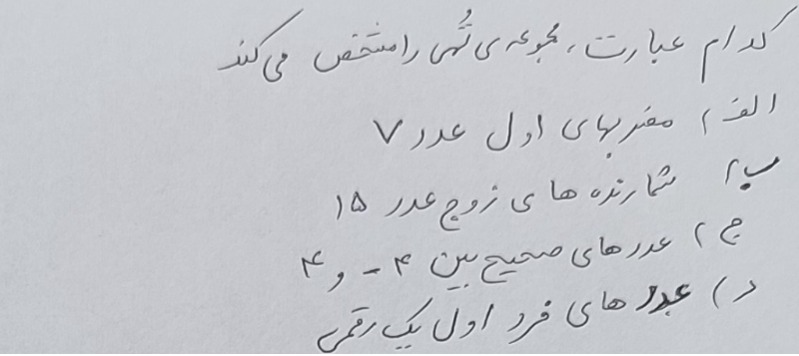 کدام عبارت، مجموعه ی تُهی را مشخص می کند
الف) مضربهای اول عدد ۷
ب) شمارنده های زوج عدد ۱۵
ج) عددهای صحیح بین ۴- و ۴
د) عددهای فرد اول یک رقمی